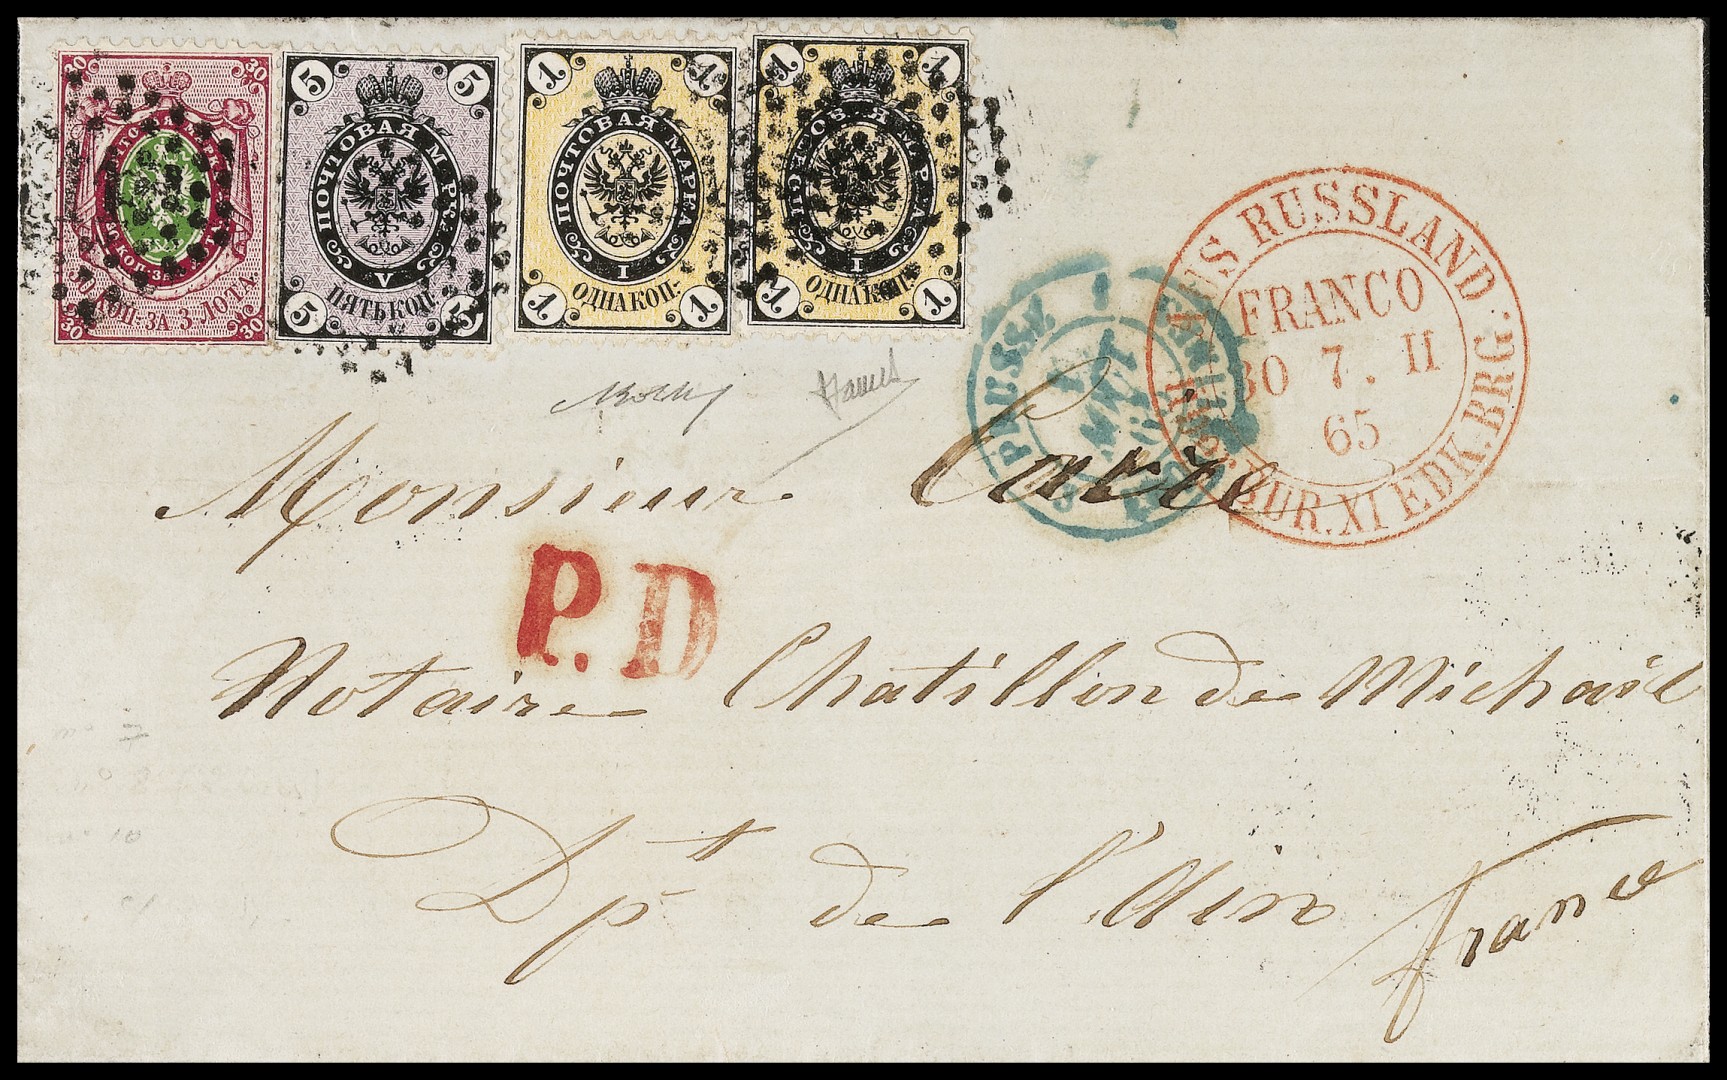 30 30
ПОЧТОВАЯ МАРКА
30 КОП. ЗА 3 ЛОТА.
30 30
5 5
ПОЧТОВАЯ МАРКА
V
ПЯТЬ КОП.
5 5
1 1
ПОЧТОВАЯ МАРКА
I
ОДНА КОП:
1 1
1 1
ПОЧТОВАЯ МАРКА
I
ОДНА КОП:
1 1
AUS RUSSLAND
FRANCO
30 7. II
65
BUR. XI EDK. BRG.
PRUSSE
Monsieur
P.D
Notaire Chatillon de Michaïl
Dpt de l'Ain
France